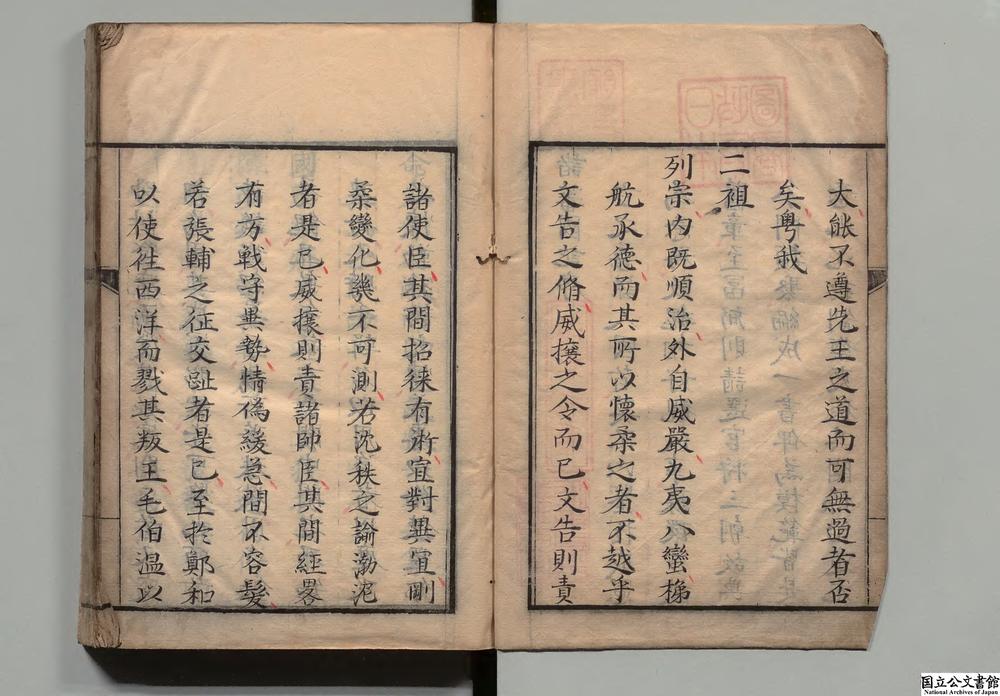 大能不遵先王之道而可無過者否
矣粤我
二祖
列宗内既順治外自威嚴九夷八蠻梯
航承德而其所以懷柔之者不越乎
文告之脩威攘之令而已文告則責
諸使臣其間招徠有術宜對異宜剛
柔變化幾不可測若沈秩之諭渤泥
者是已威攘則責諸帥臣其間經畧
有方戰守異勢情偽緩急間不容髮
若張輔之征交趾者是已至於鄭和
以使徃西洋而戮其叛王毛伯温以
国立公文書館
National Archives of Japan